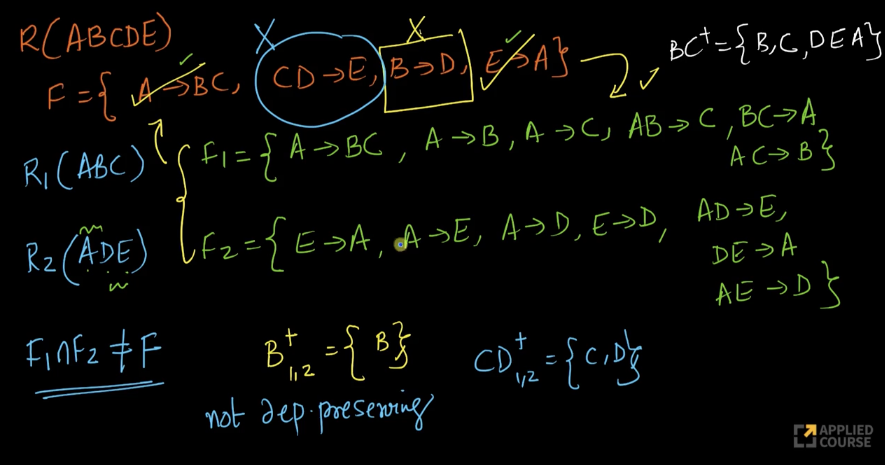 R(ABCDE)
F = { A → BC, CD → E, B → D, E → A }
BC⁺ = { B, C, D E A }
R₁(ABC)
F₁ = { A → BC, A → B, A → C, AB → C, BC → A
AC → B }
R₂(ADE)
F₂ = { E → A, A → E, A → D, E → D, AD → E,
DE → A
AE → D }
F₁ ∩ F₂ ≠ F
B⁺₁,₂ = { B }
CD⁺₁,₂ = { C, D }
not dep. preserving
APPLIED
COURSE